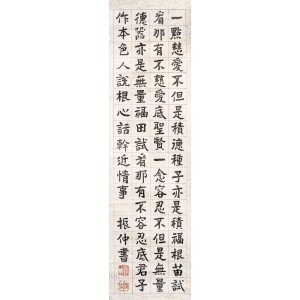 一點慈愛不但是積德種子亦是積福根苗試
看那有不慈愛底聖賢一念容忍不但是無量
德器亦是無量福田試看那有不容忍底君子
作本色人說根心話幹近情事
振仲書